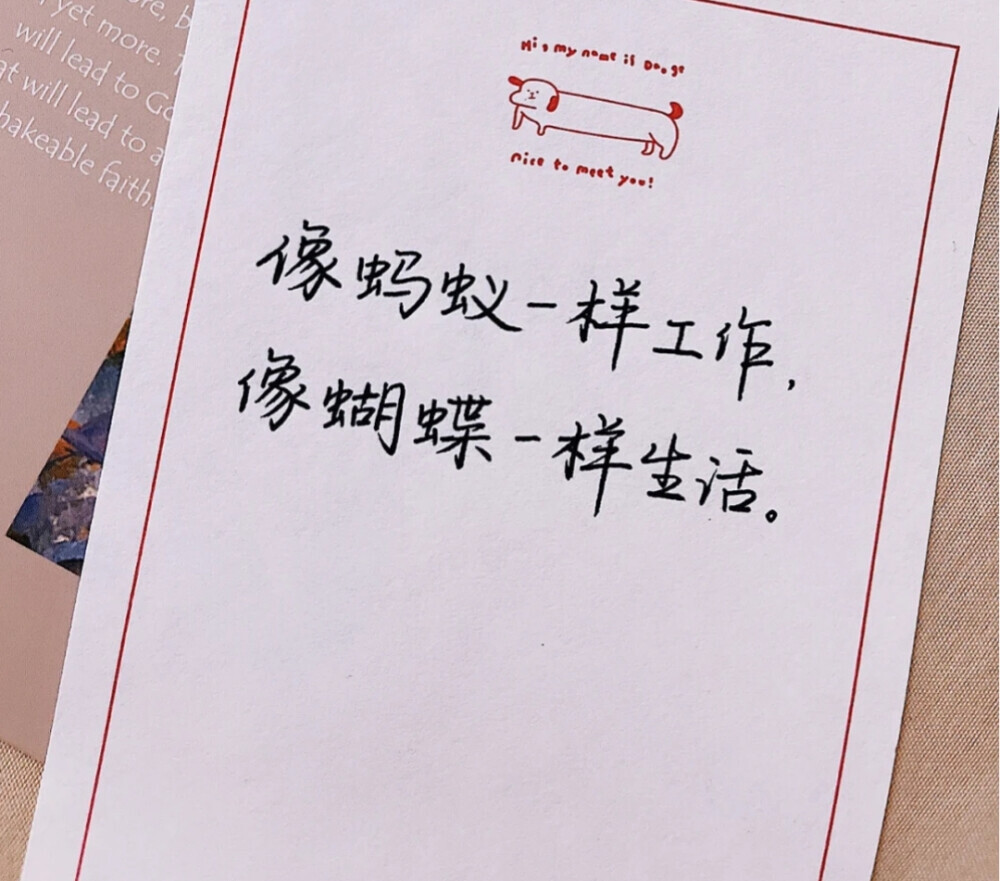 yet more.
will lead to
at will lead to a
hakeable faith.
Hi, my name is Do.ge
nice to meet you!
像蚂蚁一样工作,
像蝴蝶一样生活。